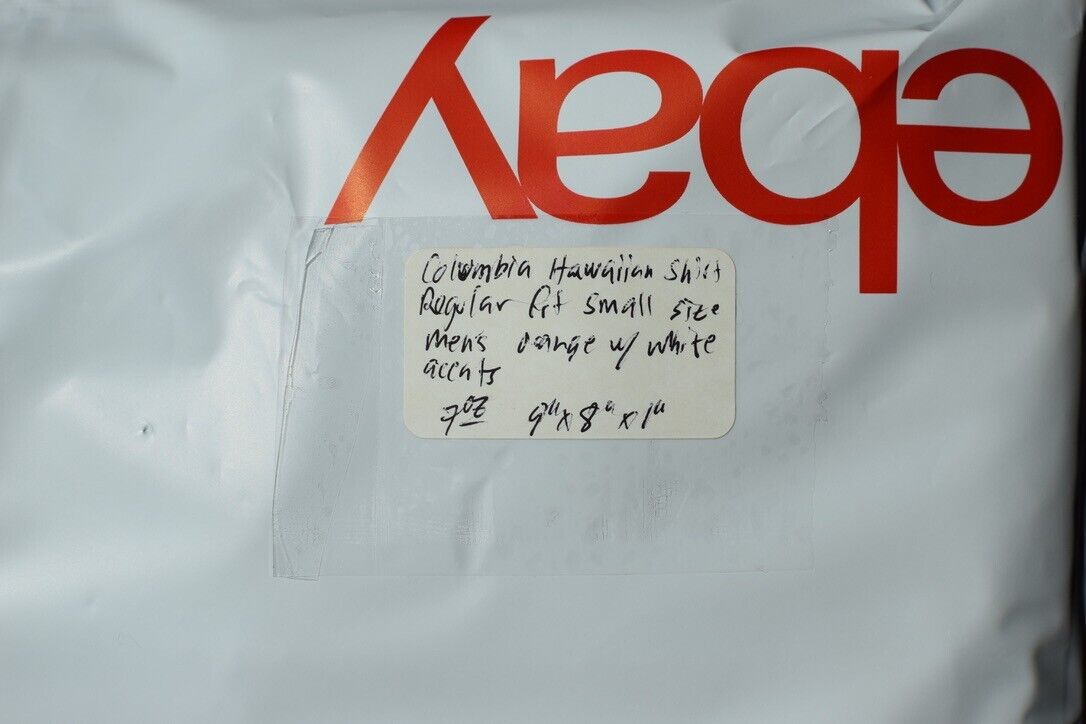 ebay
Columbia Hawaiian Shirt
Regular fit small size
men's orange w/ white
accents
7oz 9"x 8" x 1"